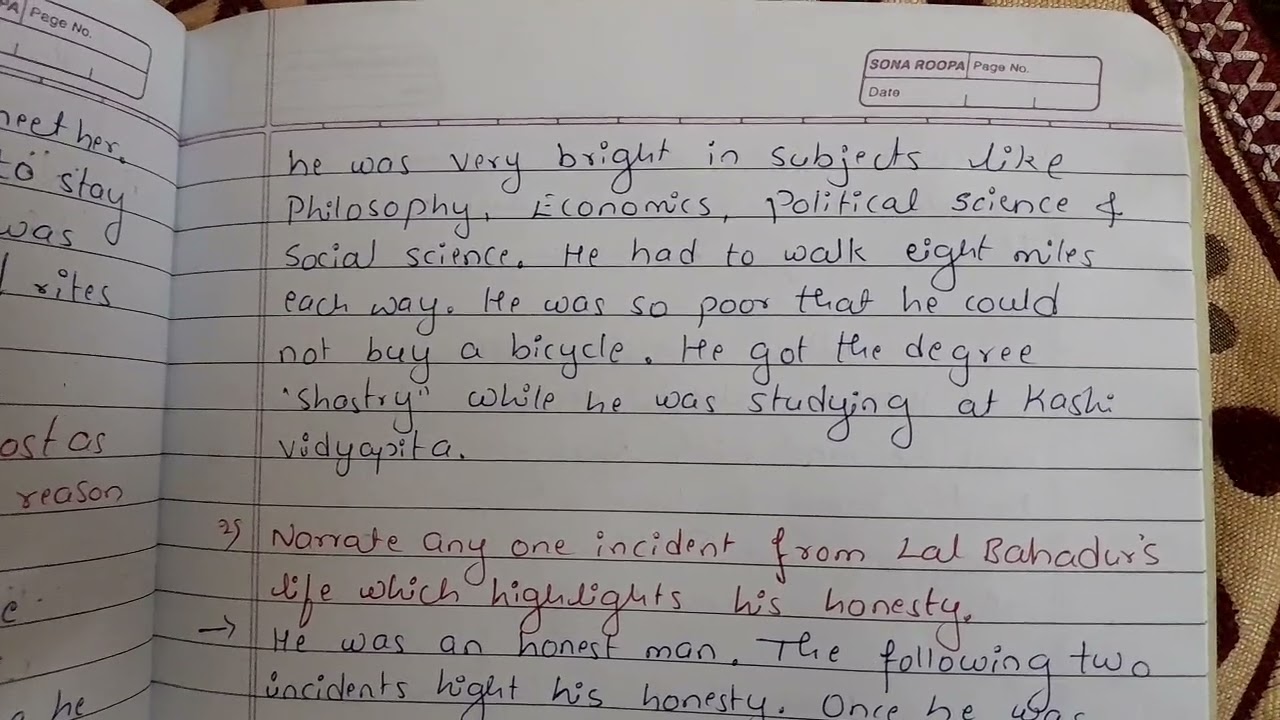 PA Page No.
neet her.
to stay
was
rites
ost as
reason
e
he
SONA ROOPA Page No.
Date
he was very bright in subjects like
Philosophy, Economics, Political science &
Social science. He had to walk eight miles
each way. He was so poor that he could
not buy a bicycle. He got the degree
"Shastry" while he was studying at Kashi
vidyapita.
2) Narrate any one incident from Lal Bahadur's
life which highlights his honesty.
→ He was an honest man. The following two
incidents hight his honesty. Once he was